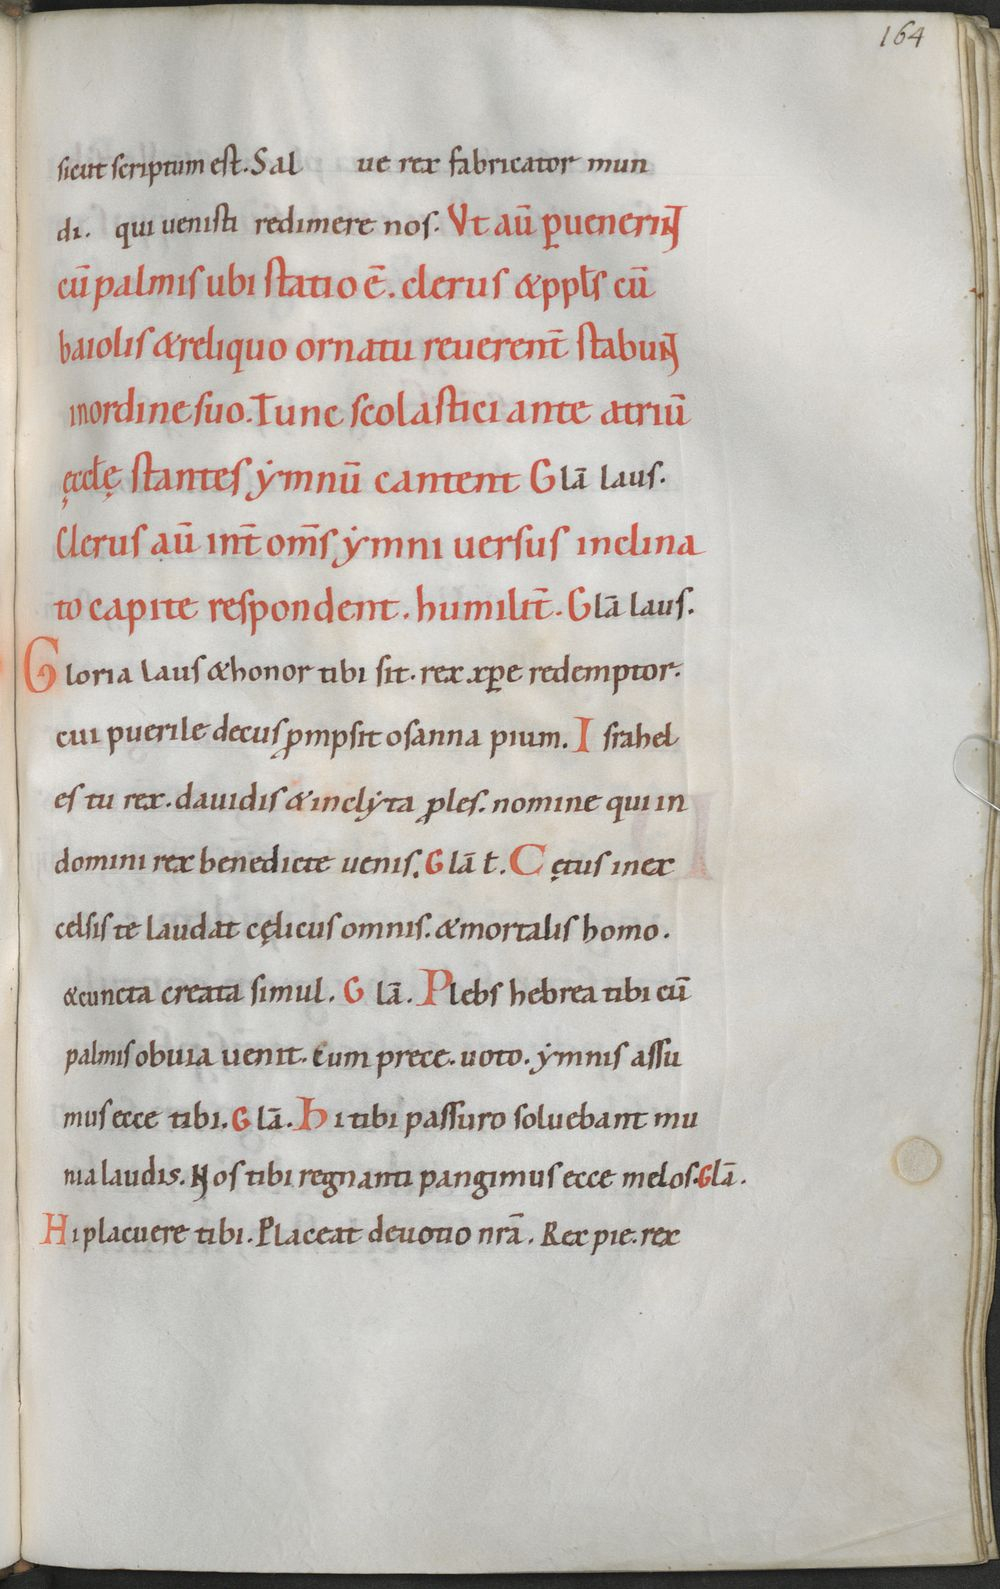 164
sicut scriptum est. Sal ue rex fabricator mun
di. qui uenisti redimere nos. Vt aū ꝑuenerinꞇ
cū palmis ubi statio ē. clerus & ppl̄s cū
baiolis & reliquo ornatu reuerent̄ stabunt
in ordine suo. Tunc scolastici ante atriū
ęccl̄ę stantes ẏmnū cantent Glā laus.
Clerus aū int̄ om̄s ẏmni uersus inclina
to capite respondent. humilit̄. Glā laus.
Gloria laus & honor tibi sit. rex xp̄e redemptor.
cui puerile decus ꝓmpsit osanna pium. Israhel
es tu rex. dauidis & inclẏta ꝓles. nomine qui in
domini rex benedicte uenis. Glā t. Cętus in ex
celsis te laudat cęlicus omnis. & mortalis homo.
& cuncta creata simul. Glā. Plebs hebrea tibi cū
palmis obuia uenit. Cum prece. uoto. ẏmnis assu
mus ecce tibi. Glā. Hi tibi passuro soluebant mu
nia laudis. Nos tibi regnanti pangimus ecce melos. Glā.
Hi placuere tibi. Placeat deuotio nrā. Rex pie. rex